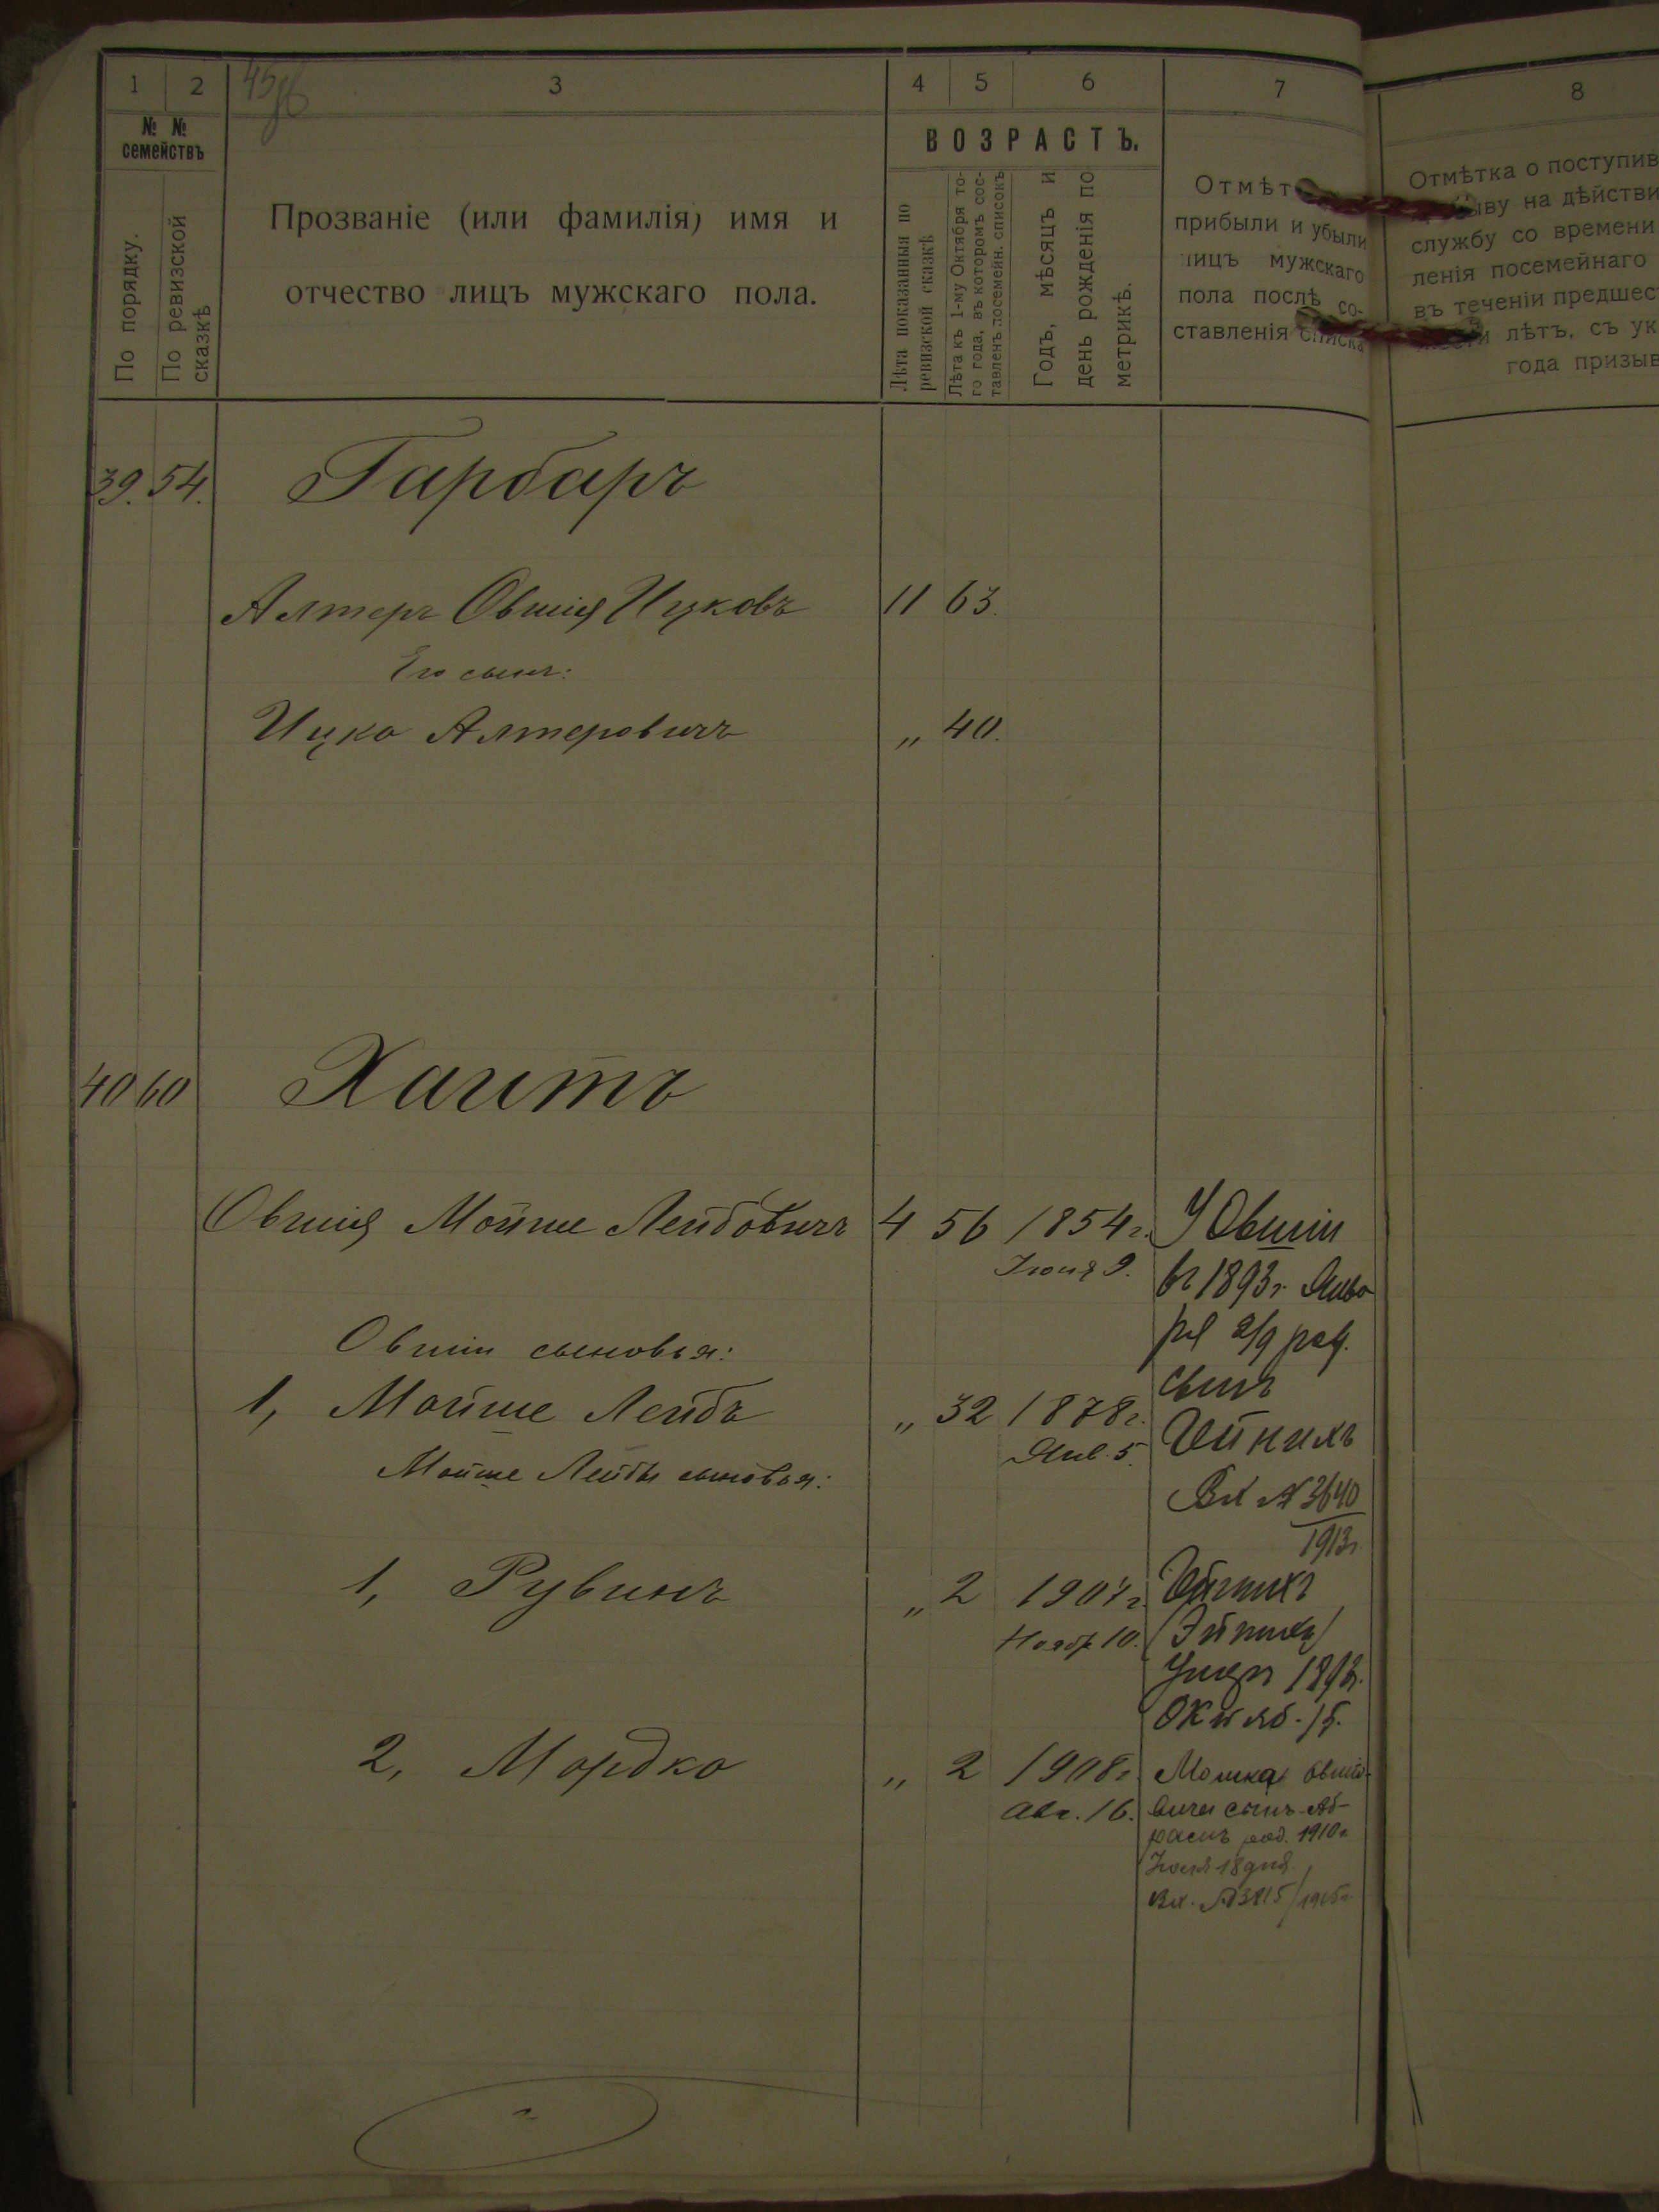 1 2 3 4 5 6 7 8
45
№ №
семействъ
По порядку.
По ревизской
сказкѣ
Прозваніе (или фамилія) имя и
отчество лицъ мужскаго пола.
ВОЗРАСТЪ.
Лѣта показанныя по
ревизской сказкѣ
Лѣта къ 1-му Октября то-
го года, въ которомъ сос-
тавленъ посемейн. списокъ
Годъ, мѣсяцъ и
день рожденія по
метрикѣ.
Отмѣт
прибыли и убыли
лицъ мужскаго
пола послѣ со-
ставленія списка
Отмѣтка о поступив
ыву на дѣйстви
службу со времени
ленія посемейнаго
въ теченіи предшес
лѣтъ, съ ук
года призыв
39. 54. Гарбаръ
Алтеръ Овшія Ицковъ 11 63.
Его сынъ:
Ицко Алтеровичъ „ 40.
40 60 Хаитъ
Овшія Мойше Лейбовичъ 4 56 1854 г.
Іюня 9.
Овшіи сыновья:
1, Мойше Лейбъ „ 32 1878 г.
Янв. 5.
Мойше Лейбы сыновья:
1, Рувинъ „ 2 1907 г.
Ноябр 10.
2, Мордко „ 2 1908 г.
Авг. 16.
У Овшіи
въ 1893 г. Янва
ря 2/9 род.
сынъ
Ойнихъ
Вх № 3640
1913 г.
Умеръ
Октяб. 15.
Мошка Овшіо-
вича сынъ Аб-
рамъ род. 1910 г.
18 дня.
Вх. № 3815/1915 г.